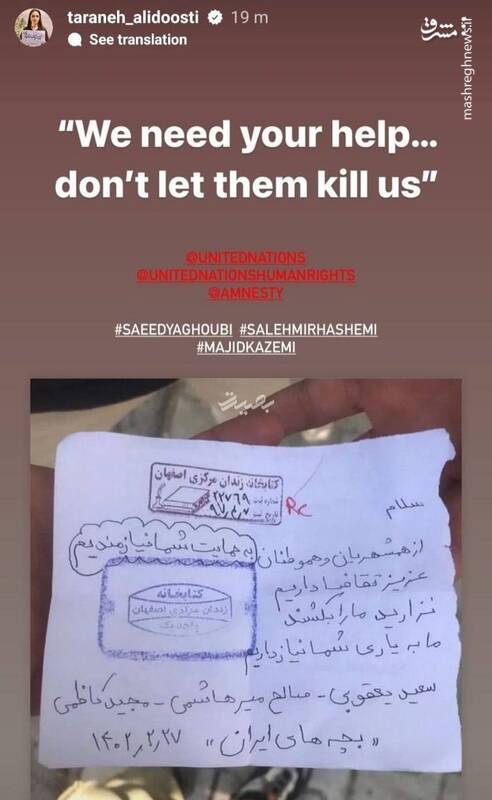 taraneh_alidoosti 19 m
See translation
مشرق
mashreghnews.ir
“We need your help...
don’t let them kill us”
@UNITEDNATIONS
@UNITEDNATIONSHUMANRIGHTS
@AMNESTY
#SAEEDYAGHOUBI #SALEHMIRHASHEMI
#MAJIDKAZEMI
بصیرت
کتابخانه زندان مرکزی اصفهان
شماره ثبت ۲۲۷۶۹
تاریخ ثبت ۹۷,۴,۷
Rc
سلام
از همشهریان و هموطنان به حمایت شما نیازمندیم
عزیز تقاضا داریم
نزارید ما را بکشند
ما به یاری شما نیاز داریم
کتابخانه
زندان مرکزی اصفهان
سعید یعقوبی - صالح میرهاشمی - مجید کاظمی
«بچه های ایران» ۱۴۰۲,۲,۲۷